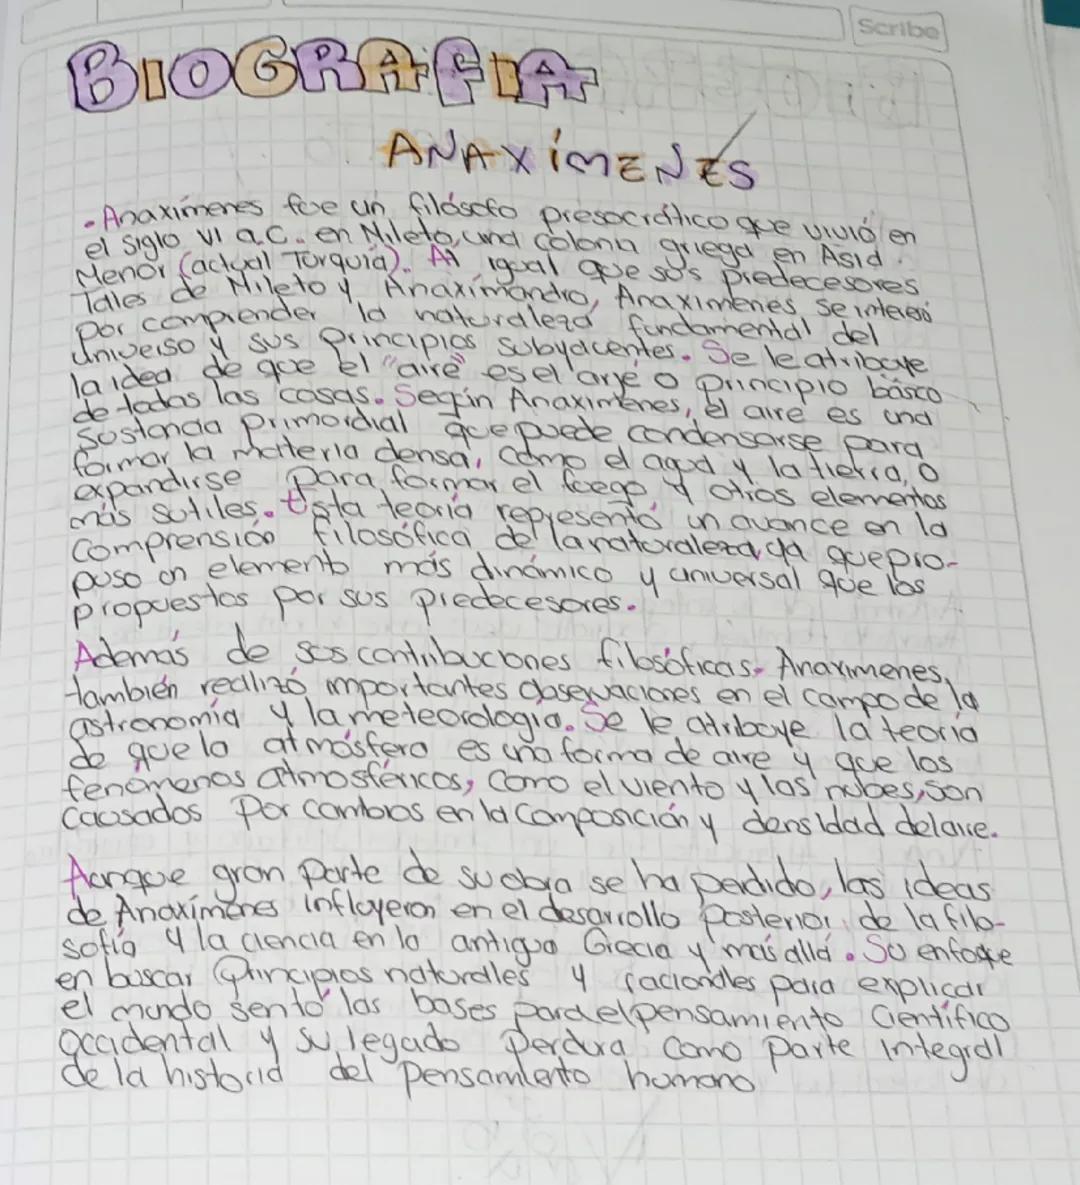 Scribe
BIOGRAFIA
ANAXÍMENES
• Anaxímenes fue un filósofo presocrático que vivió en
el siglo VI a.C. en Mileto, una colonia griega en Asia
Menor (actual Turquía). Al igual que sus predecesores
Tales de Mileto y Anaximandro, Anaxímenes se interesó
por comprender la naturaleza fundamental del
universo y sus principios subyacentes. Se le atribuye
la idea de que el "aire" es el arjé o principio básico
de todas las cosas. Según Anaxímenes, el aire es una
sustancia primordial que puede condensarse para
formar la materia densa, como el agua y la tierra, o
expandirse para formar el fuego y otros elementos
más sutiles. Esta teoría representó un avance en la
comprensión filosófica de la naturaleza, ya que pro-
puso un elemento más dinámico y universal que los
propuestos por sus predecesores.
Además de sus contribuciones filosóficas, Anaxímenes,
también realizó importantes observaciones en el campo de la
astronomía y la meteorología. Se le atribuye la teoría
de que la atmósfera es una forma de aire y que los
fenómenos atmosféricos, como el viento y las nubes, son
causados por cambios en la composición y densidad del aire.
Aunque gran parte de su obra se ha perdido, las ideas
de Anaxímenes influyeron en el desarrollo posterior de la filo-
sofía y la ciencia en la antigua Grecia y más allá. Su enfoque
en buscar principios naturales y racionales para explicar
el mundo sentó las bases para el pensamiento científico
occidental y su legado perdura como parte integral
de la historia del pensamiento humano